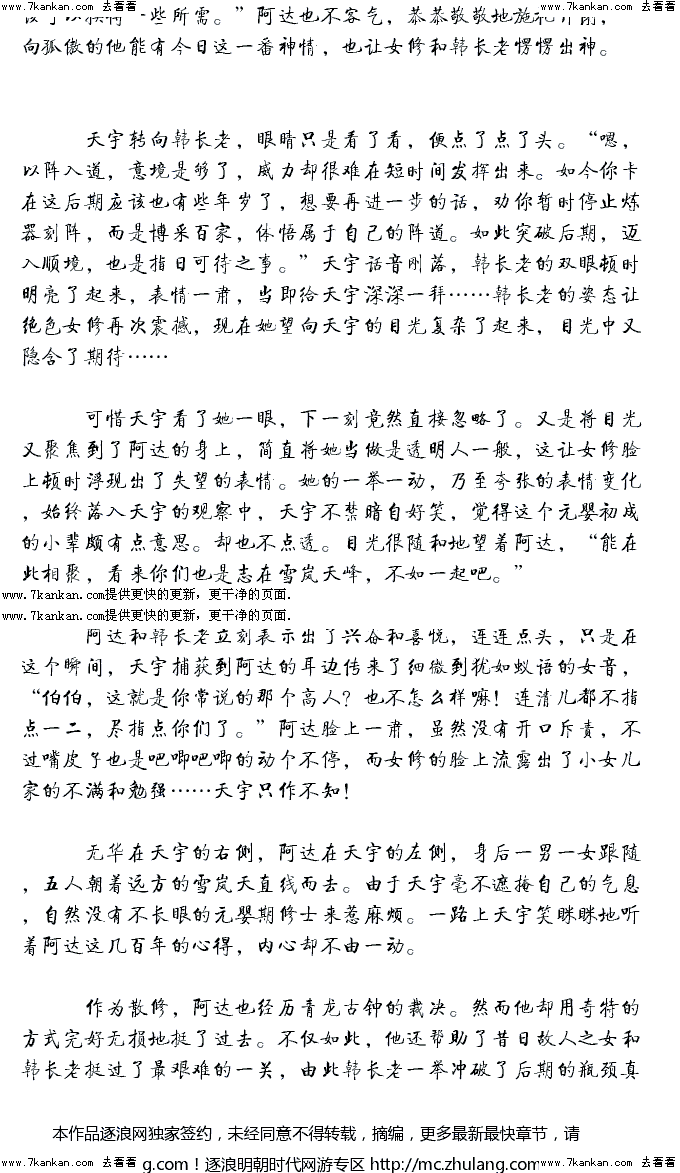 www.7kankan.com 去看看 www.7kankan.com 去看看 www.7kankan.com 去看看 www.7kankan.com 去看看
一些所需。”阿达也不客气，恭恭敬敬地施礼
向孤傲的他能有今日这一番神情，也让女修和韩长老愣愣出神。
天宇转向韩长老，眼睛只是看了看，便点了点了头。“嗯，
以阵入道，意境是够了，威力却很难在短时间发挥出来。如今你卡
在这后期应该也有些年岁了，想要再进一步的话，劝你暂时停止炼
器刻阵，而是博采百家，体悟属于自己的阵道。如此突破后期，迈
入顺境，也是指日可待之事。”天宇话音刚落，韩长老的双眼顿时
明亮了起来，表情一肃，当即给天宇深深一拜……韩长老的姿态让
绝色女修再次震撼，现在她望向天宇的目光复杂了起来，目光中又
隐含了期待……
可惜天宇看了她一眼，下一刻竟然直接忽略了。又是将目光
又聚焦到了阿达的身上，简直将她当做是透明人一般，这让女修脸
上顿时浮现出了失望的表情。她的一举一动，乃至夸张的表情变化
，始终落入天宇的观察中，天宇不禁暗自好笑，觉得这个元婴初成
的小辈颇有点意思。却也不点透。目光很随和地望着阿达，“能在
此相聚，看来你们也是志在雪岚天峰，不如一起吧。”
www.7kankan.com提供更快的更新，更干净的页面.
www.7kankan.com提供更快的更新，更干净的页面.
阿达和韩长老立刻表示出了兴奋和喜悦，连连点头，只是在
这个瞬间，天宇捕获到阿达的耳边传来了细微到犹如蚁语的女音，
“伯伯，这就是你常说的那个高人？也不怎么样嘛！连清儿都不指
点一二，尽指点你们了。”阿达脸上一肃，虽然没有开口斥责，不
过嘴皮子也是吧唧吧唧的动个不停，而女修的脸上流露出了小女儿
家的不满和勉强……天宇只作不知！
无华在天宇的右侧，阿达在天宇的左侧，身后一男一女跟随
，五人朝着远方的雪岚天直线而去。由于天宇毫不遮掩自己的气息
，自然没有不长眼的元婴期修士来惹麻烦。一路上天宇笑眯眯地听
着阿达这几百年的心得，内心却不由一动。
作为散修，阿达也经历青龙古钟的裁决。然而他却用奇特的
方式完好无损地挺了过去。不仅如此，他还帮助了昔日故人之女和
韩长老挺过了最艰难的一关，由此韩长老一举冲破了后期的瓶颈真
本作品逐浪网独家签约，未经同意不得转载，摘编，更多最新最快章节，请
www.7kankan.com 去看看 g.com！逐浪明朝时代网游专区 http://mc.zhulang.com/ www.7kankan.com 去看看